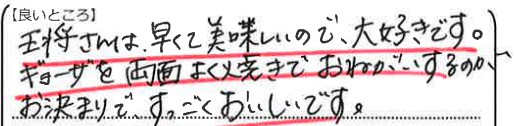 【良いところ】
王将さんは、早くて美味しいので、大好きです。
ギョーザを両面よく焼きでおねがいするのが、
お決まりで、すっごくおいしいです。